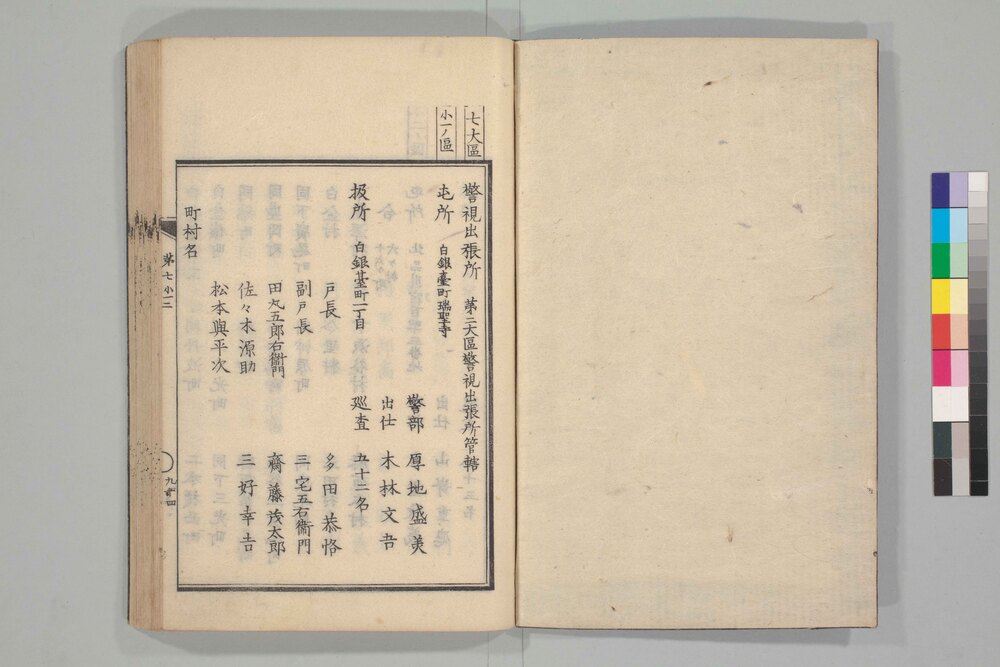 七大區
小一ノ區
警視出張所 第二大區警視出張所管轄
屯所 白銀臺町瑞聖寺
警部 厚地盛美
出仕 木林文吾
扱所 白銀臺町一丁目 巡査 五十二名
戸長 多田恭恪
副戸長 三宅五右衞門
田丸五郎右衞門 齋藤茂太郎
佐々木源助 三好幸吉
松本與平次
町村名
第七 小一二